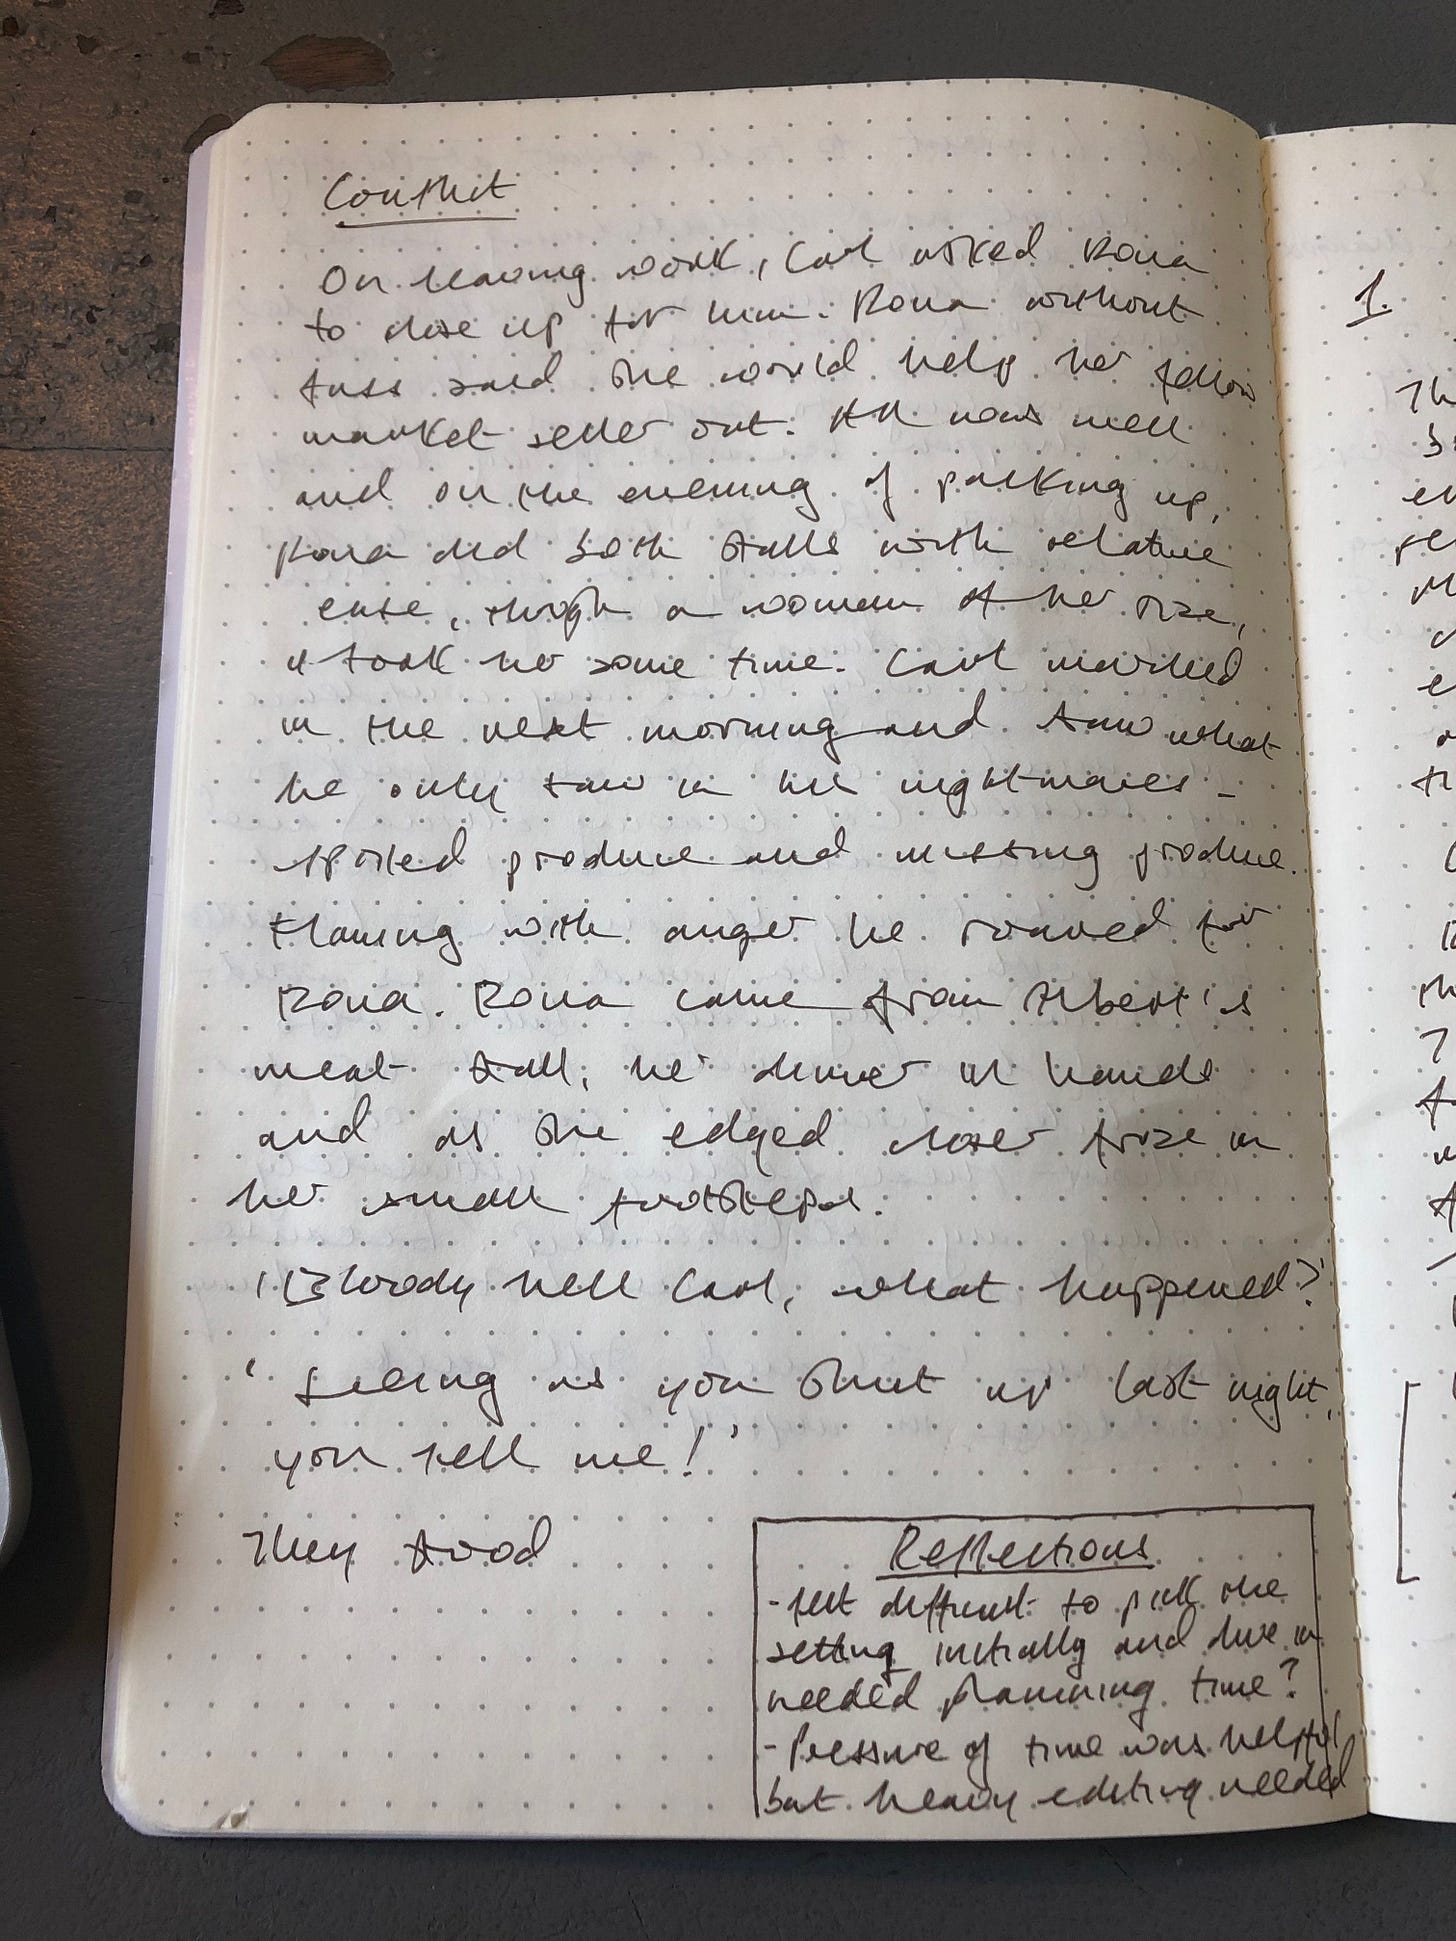 Conflict
On leaving work, Carl asked Rona
to close up for him. Rona without
fuss said she would help her fellow
market seller out. All was well
and on the evening of packing up,
Rona did both stalls with relative
ease, though a woman of her size,
it took her some time. Carl marched
in the next morning and saw what
he only saw in his nightmares -
spoiled produce and missing produce.
Flaming with anger he roared for
Rona. Rona came from Albert's
meat stall, her dinner in hands
and as she edged closer froze in
her small footsteps.
'Bloody hell Carl, what happened?'
'Seeing as you shut up last night,
you tell me!'
They stood
Reflections
- felt difficult to pick the
setting initially and dive in
needed planning time?
- Pressure of time was helpful
but heavy editing needed
1.
Th